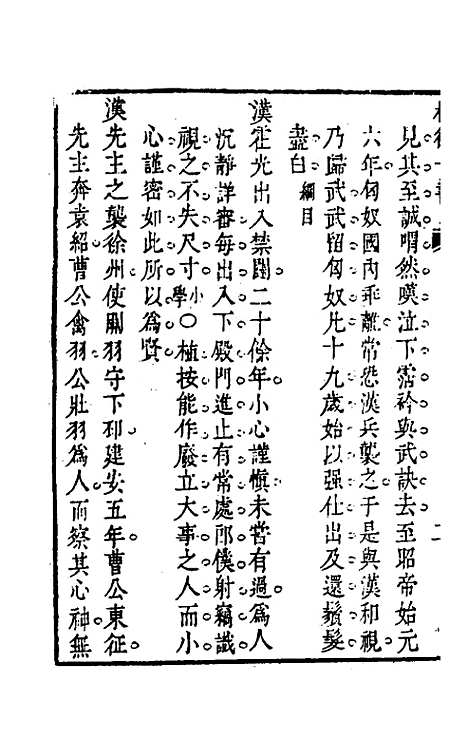 見其至誠喟然嘆泣下霑衿與武訣去至昭帝始元
六年匈奴國內乖離常恐漢兵襲之于是與漢和親
乃歸武武留匈奴凡十九歲始以强仕出及還鬚髮
盡白 綱目
漢霍光出入禁闥二十餘年小心謹慎未嘗有過為人
沉靜詳審每出入下殿門進止有常處郎僕射竊識
視之不失尺寸 小學 ○植按能作廢立大事之人而小
心謹密如此所以為賢
漢先主之襲徐州使關羽守下邳建安五年曹公東征
先主奔袁紹曹公禽羽公壯羽為人而察其心神無